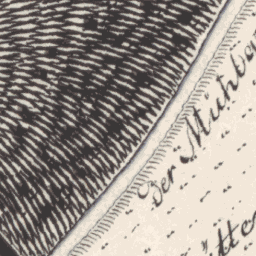 Der Mühlba
ütte